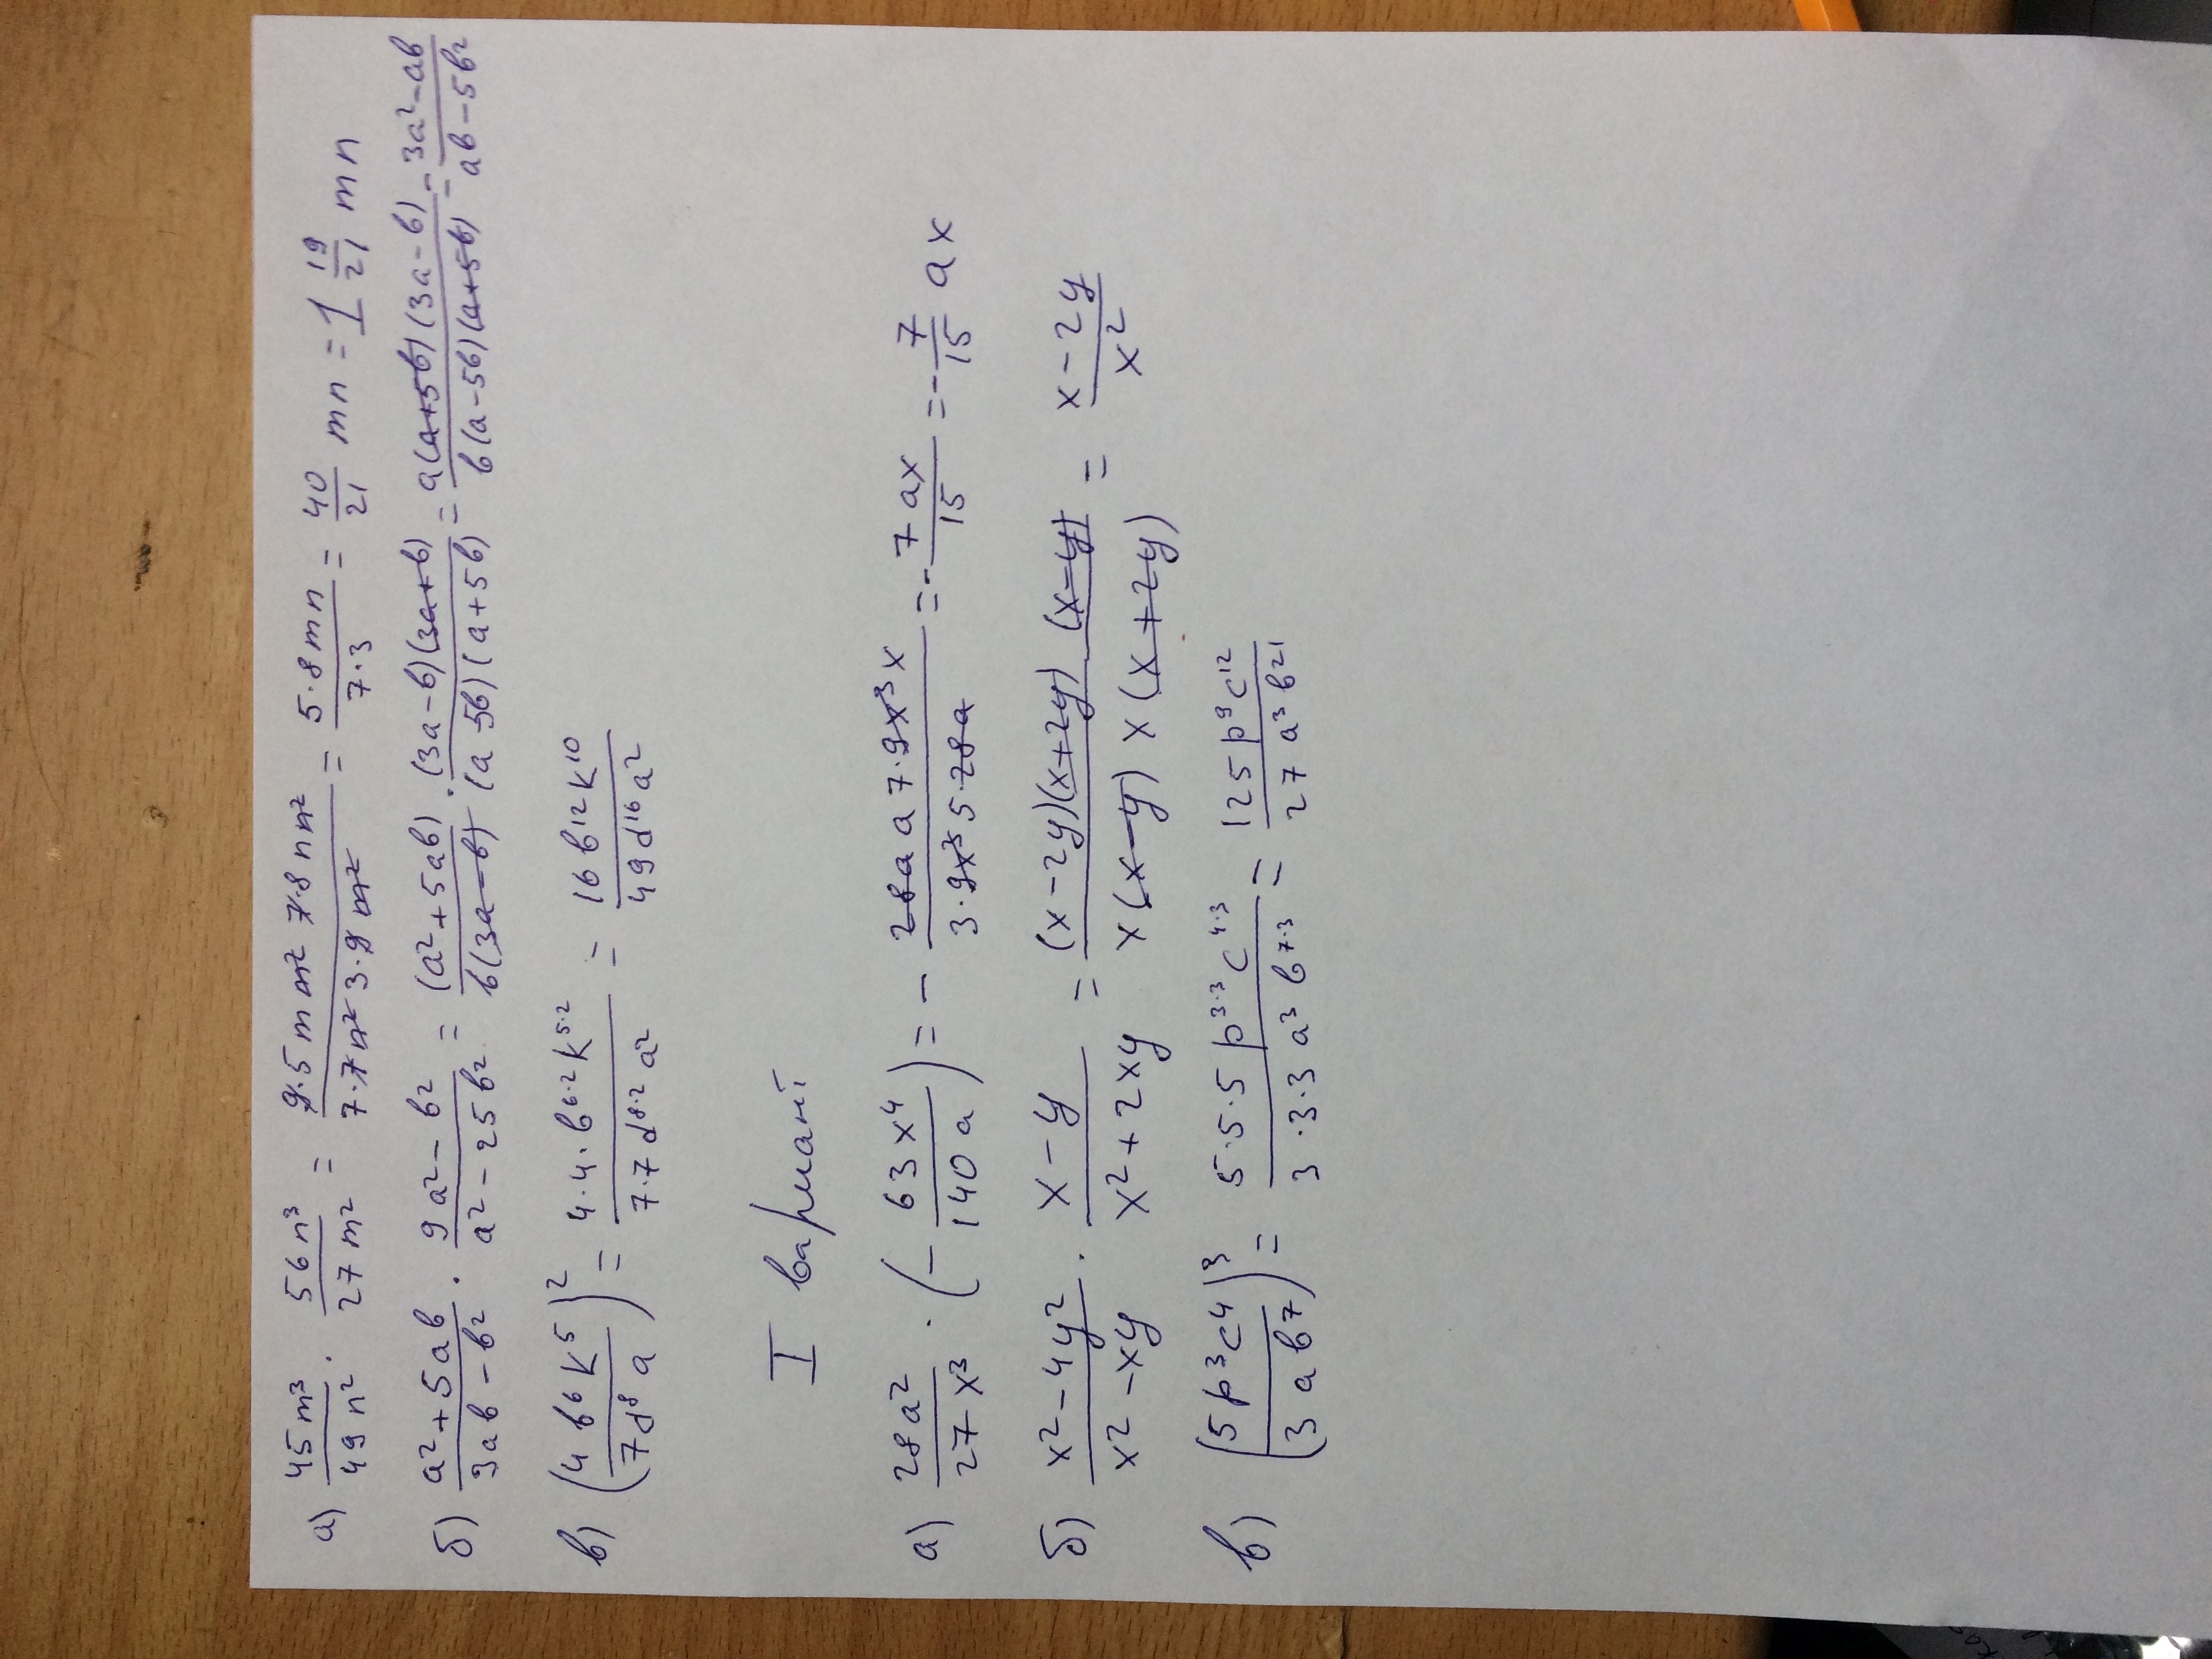 а) 45m³/49n² · 56n³/27m² = 9·5 m m² 7·8 n n²/7·7n² 3·9 m² = 5·8mn/7·3 = 40/21 mn = 1 19/21 mn
б) a²+5ab/3ab−b² · 9a²−b²/a²−25b² = (a²+5ab)/b(3a−b) · (3a−b)(3a+b)/(a−5b)(a+5b) = a(a+5b)(3a−b)/b(a−5b)(a+5b) = 3a²−ab/ab−5b²
в) (4b⁶k⁵/7d⁸a)² = 4·4·b⁶·²k⁵·²/7·7d⁸·²a² = 16b¹²k¹⁰/49d¹⁶a²
I вариант
а) 28a²/27x³ · (−63x⁴/140a) = − 28a a 7·9x³x/3·9x³5·28a = − 7ax/15 = − 7/15 ax
б) x²−4y²/x²−xy · x−y/x²+2xy = (x−2y)(x+2y)(x−y)/x(x−y)x(x+2y) = x−2y/x²
в) (5p³c⁴/3ab⁷)³ = 5·5·5p³·³c⁴·³/3·3·3a³b⁷·³ = 125p⁹c¹²/27a³b²¹